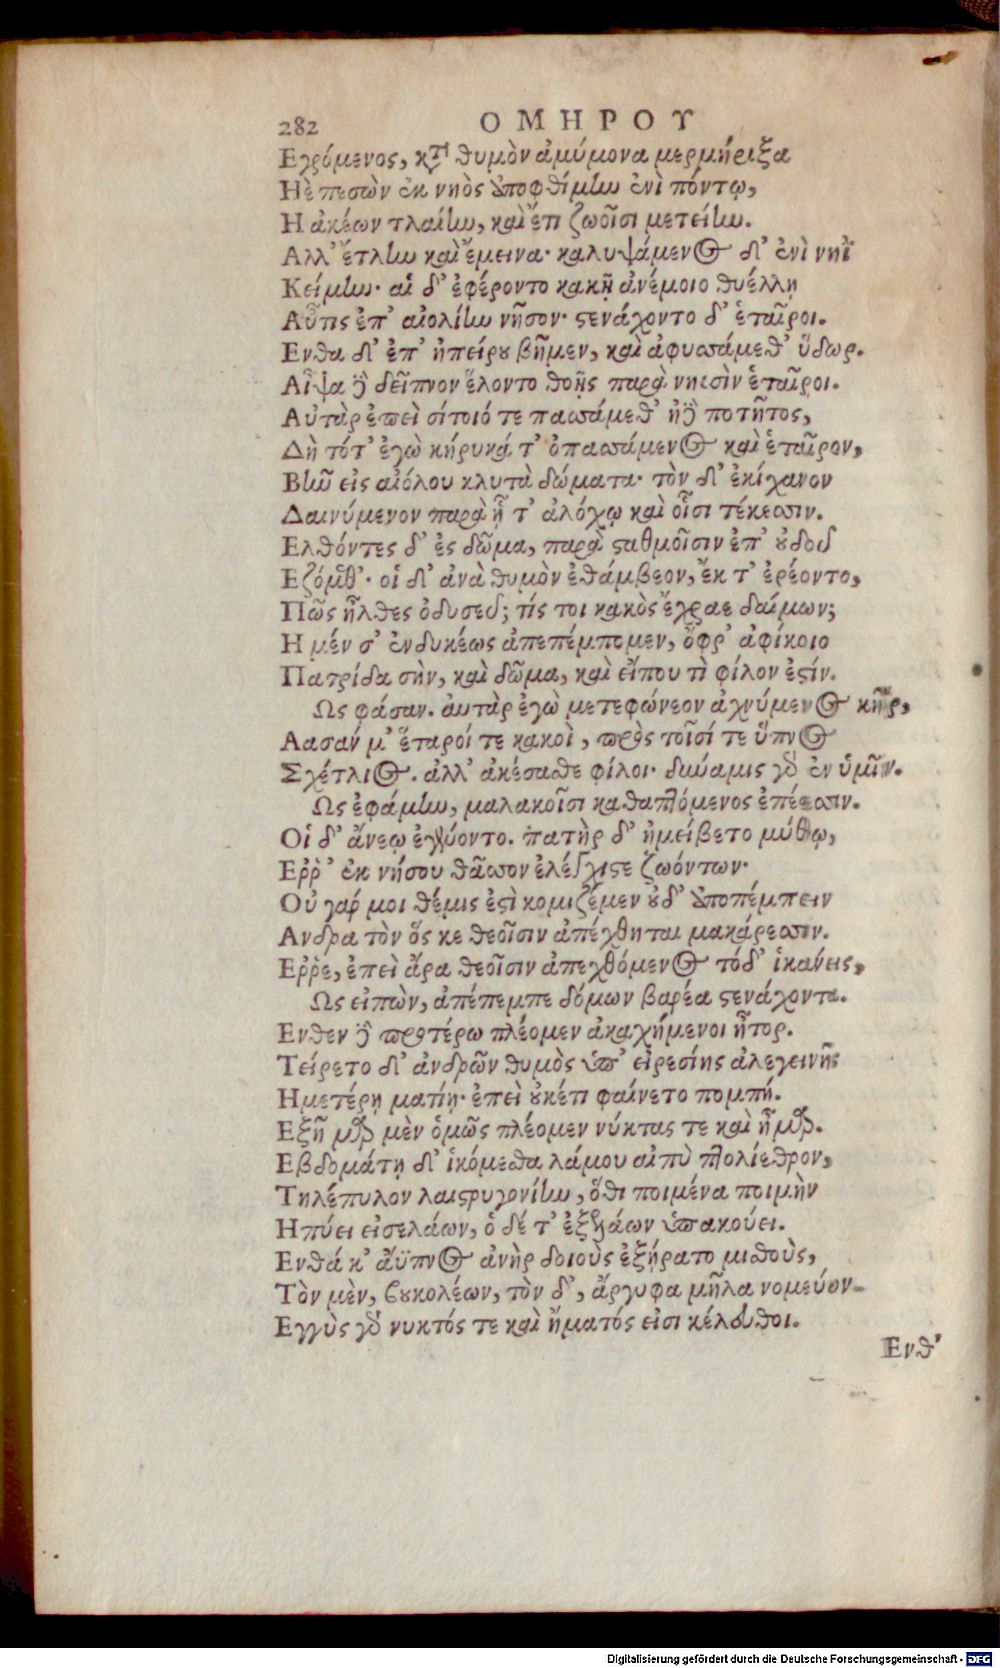 282 ΟΜΗΡΟΥ
Εγρόμενος, κτ̀ θυμὸν ἀμύμονα μερμήριξα
Ηὲ πεσὼν ἐκ νηὸς ἀποφθίμην ἐνὶ πόντῳ,
Η ἀκέων τλαίην, καὶ ἔτι ζωοῖσι μετείην.
Αλλ' ἔτλην καὶ ἔμεινα· καλυψάμενος δ' ἐνὶ νηῒ
Κείμην· αἱ δ' ἐφέροντο κακῇ ἀνέμοιο θυέλλῃ
Αὖτις ἐπ' αἰολίην νῆσον· στενάχοντο δ' ἑταῖροι.
Ενθα δ' ἐπ' ἠπείρου βῆμεν, καὶ ἀφυσσάμεθ' ὕδωρ.
Αἶψα δὲ δεῖπνον ἕλοντο θοῇς παρὰ νηυσὶν ἑταῖροι.
Αὐτὰρ ἐπεὶ σίτοιό τε πασσάμεθ' ἠδὲ ποτῆτος,
Δὴ τότ' ἐγὼ κήρυκά τ' ὀπασσάμενος καὶ ἑταῖρον,
Βῆν εἰς αἰόλου κλυτὰ δώματα· τὸν δ' ἐκίχανον
Δαινύμενον παρὰ ᾗ τ' ἀλόχῳ καὶ οἷσι τέκεσσιν.
Ελθόντες δ' ἐς δῶμα, παρὰ σταθμοῖσιν ἐπ' οὐδοῦ
Εζόμεθ'· οἱ δ' ἀνὰ θυμὸν ἐθάμβεον, ἔκ τ' ἐρέοντο,
Πῶς ἦλθες ὀδυσεῦ; τίς τοι κακὸς ἔχραε δαίμων;
Η μέν σ' ἐνδυκέως ἀπεπέμπομεν, ὄφρ' ἀφίκοιο
Πατρίδα σὴν, καὶ δῶμα, καὶ εἴπου τὶ φίλον ἐστίν.
Ως φάσαν. ἀυτὰρ ἐγὼ μετεφώνεον ἀχνύμενος κῆρ,
Αασάν μ' ἕταροί τε κακοὶ, πρὸς τοῖσί τε ὕπνος
Σχέτλιος. ἀλλ' ἀκέσασθε φίλοι· δύναμις γὰρ ἐν ὑμῖν.
Ως ἐφάμην, μαλακοῖσι καθαπτόμενος ἐπέεσσιν.
Οἱ δ' ἄνεῳ ἐγένοντο. πατὴρ δ' ἠμείβετο μύθῳ,
Εῤῥ' ἐκ νήσου θᾶσσον ἐλέγχιστε ζωόντων·
Οὐ γάρ μοι θέμις ἐστὶ κομιζέμεν οὐδ' ἀποπέμπειν
Ανδρα τὸν ὅς κε θεοῖσιν ἀπέχθηται μακάρεσσιν.
Εῤῥε, ἐπεὶ ἄρα θεοῖσιν ἀπεχθόμενος τόδ' ἱκάνεις,
Ως εἰπὼν, ἀπέπεμπε δόμων βαρέα στενάχοντα.
Ενθεν δὲ προτέρω πλέομεν ἀκαχήμενοι ἦτορ.
Τείρετο δ' ἀνδρῶν θυμὸς ὑπ' εἰρεσίης ἀλεγεινῆς
Ημετέρῃ ματίῃ· ἐπεὶ οὐκέτι φαίνετο πομπή.
Εξῆμαρ μὲν ὁμῶς πλέομεν νύκτας τε καὶ ἦμαρ.
Εβδομάτῃ δ' ἱκόμεσθα λάμου αἰπὺ πτολίεθρον,
Τηλέπυλον λαιστρυγονίην, ὅθι ποιμένα ποιμὴν
Ηπύει εἰσελάων, ὁ δέ τ' ἐξελάων ὑπακούει.
Ενθά κ' ἄϋπνος ἀνὴρ δοιοὺς ἐξήρατο μισθοὺς,
Τὸν μὲν, βουκολέων, τὸν δ', ἄργυφα μῆλα νομεύων·
Εγγὺς γὰρ νυκτός τε καὶ ἤματός εἰσι κέλευθοι.
Ενθ'
Digitalisierung gefördert durch die Deutsche Forschungsgemeinschaft - DFG